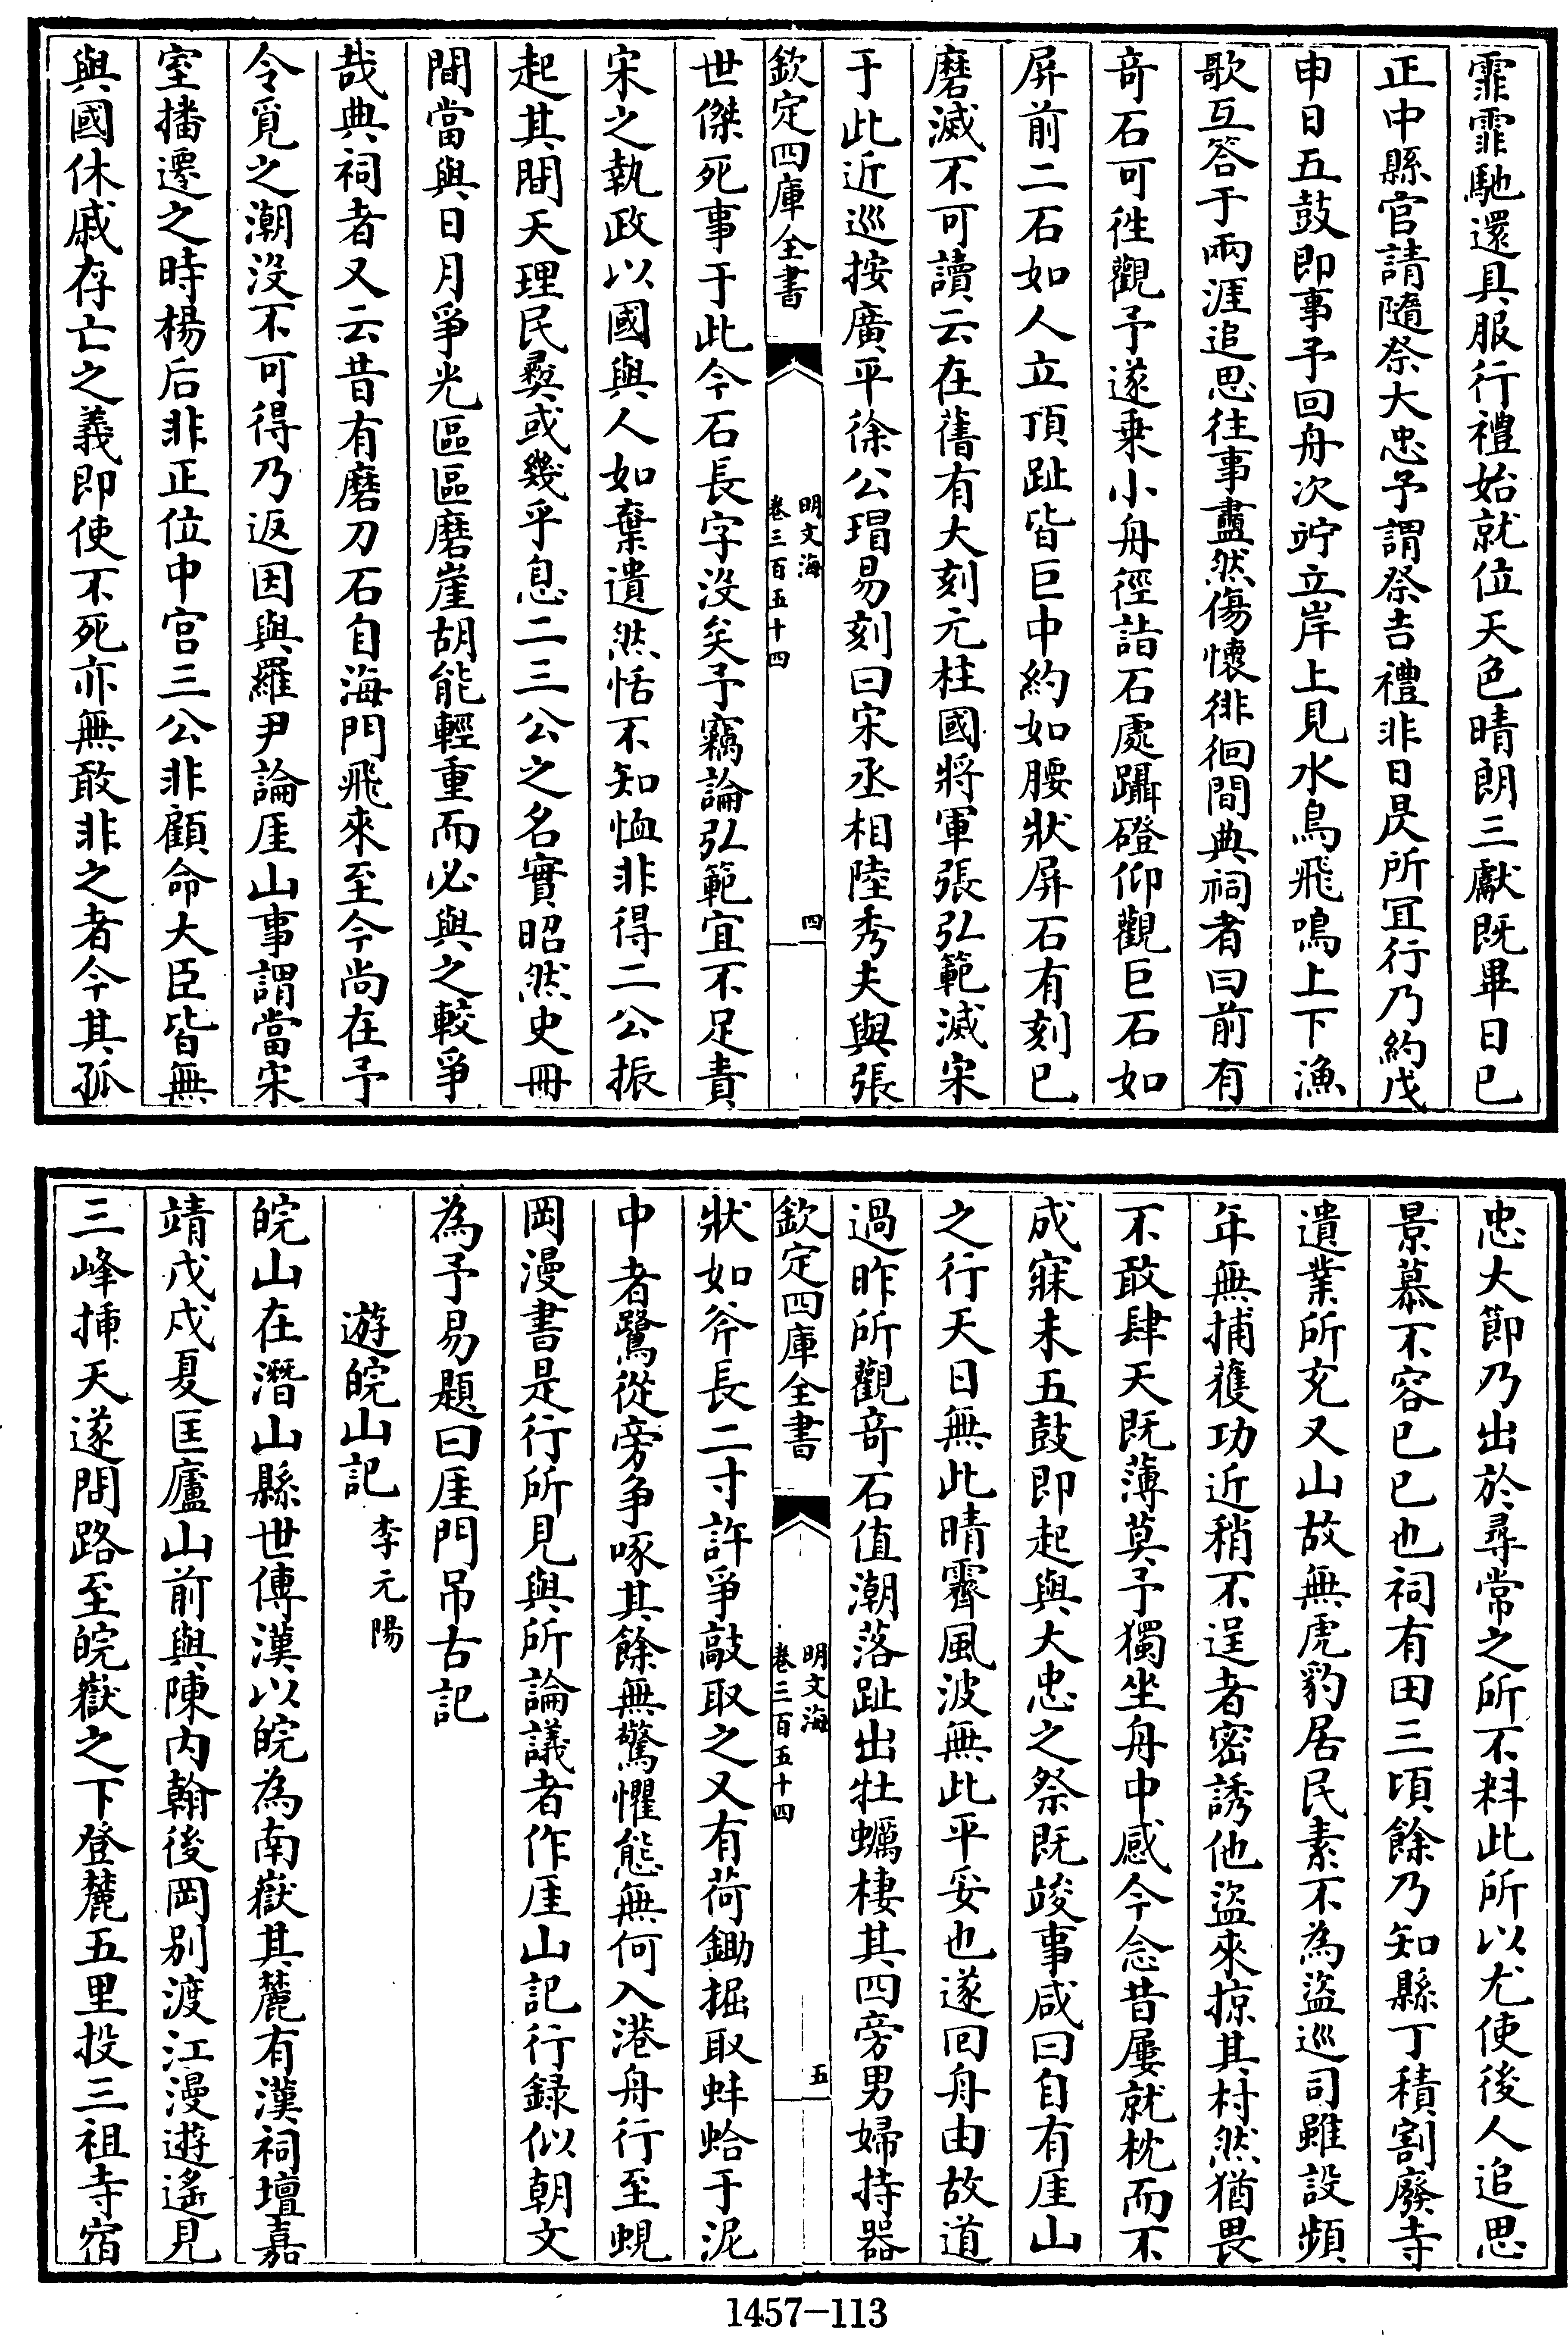 霏霏馳還具服行禮始就位天色晴朗三獻既畢日已
正中縣官請隨祭大忠予謂祭吉禮非日昃所宜行乃約戊
申日五鼓即事予回舟次竚立岸上見水鳥飛鳴上下漁
歌互答于兩涯追思往事盡然傷懷徘徊間典祠者曰前有
竒石可徃觀予遂乗小舟徑詣石處躡磴仰觀巨石如
屏前二石如人立頂趾皆巨中約如腰狀屏石有刻已
磨滅不可讀云在舊有大刻元柱國將軍張弘範滅宋
于此近巡按廣平徐公瑁易刻曰宋丞相陸秀夫與張
欽定四庫全書
明文海
卷三百五十四
四
世傑死事于此今石長字沒矣予竊論弘範宜不足責
宋之執政以國與人如棄遺然恬不知恤非得二公振
起其間天理民彛或幾乎息二三公之名實昭然史冊
間當與日月爭光區區磨崖胡能輕重而必與之較爭
哉典祠者又云昔有磨刀石自海門飛來至今尚在予
令覓之潮沒不可得乃返因與羅尹論厓山事謂當宋
室播遷之時楊后非正位中宫三公非顧命大臣皆無
與國休戚存亡之義即使不死亦無敢非之者今其孤
忠大節乃出於尋常之所不料此所以尤使後人追思
景慕不容已已已也祠有田三頃餘乃知縣丁積割廢寺
遺業所充又山故無虎豹居民素不為盜巡司雖設頻
年無捕獲功近稍不逞者密誘他盜來掠其村然猶畏
不敢肆天既薄莫予獨坐舟中感今念昔屢就枕而不
成寐未五鼓即起與大忠之祭既竣事咸曰自有厓山
之行天日無此晴霽風波無此平妥也遂囘舟由故道
過昨所觀竒石值潮落趾出牡蠣棲其四旁男婦持器
欽定四庫全書
明文海
卷三百五十四
五
狀如斧長二寸許爭敲取之又有荷鋤掘取蚌蛤于泥
中者鷺從旁争啄其餘無驚懼態無何入港舟行至蜆
岡漫書是行所見與所論議者作厓山記行録似朝文
為予易題曰厓門吊古記
遊皖山記 李元陽
皖山在潛山縣世傳漢以皖為南嶽其麓有漢祠壇嘉
靖戊戌夏匡廬山前與陳内翰後岡别渡江漫遊遙見
三峰揷天遂問路至皖嶽之下登麓五里投三祖寺宿
1457-113